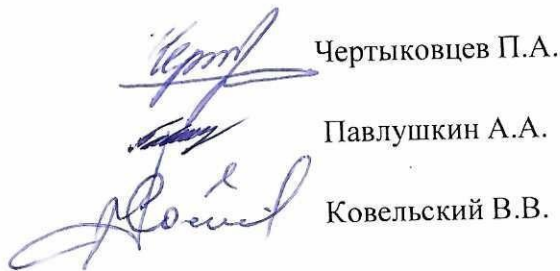 Чертыковцев П.А.
Павлушкин А.А.
Ковельский В.В.